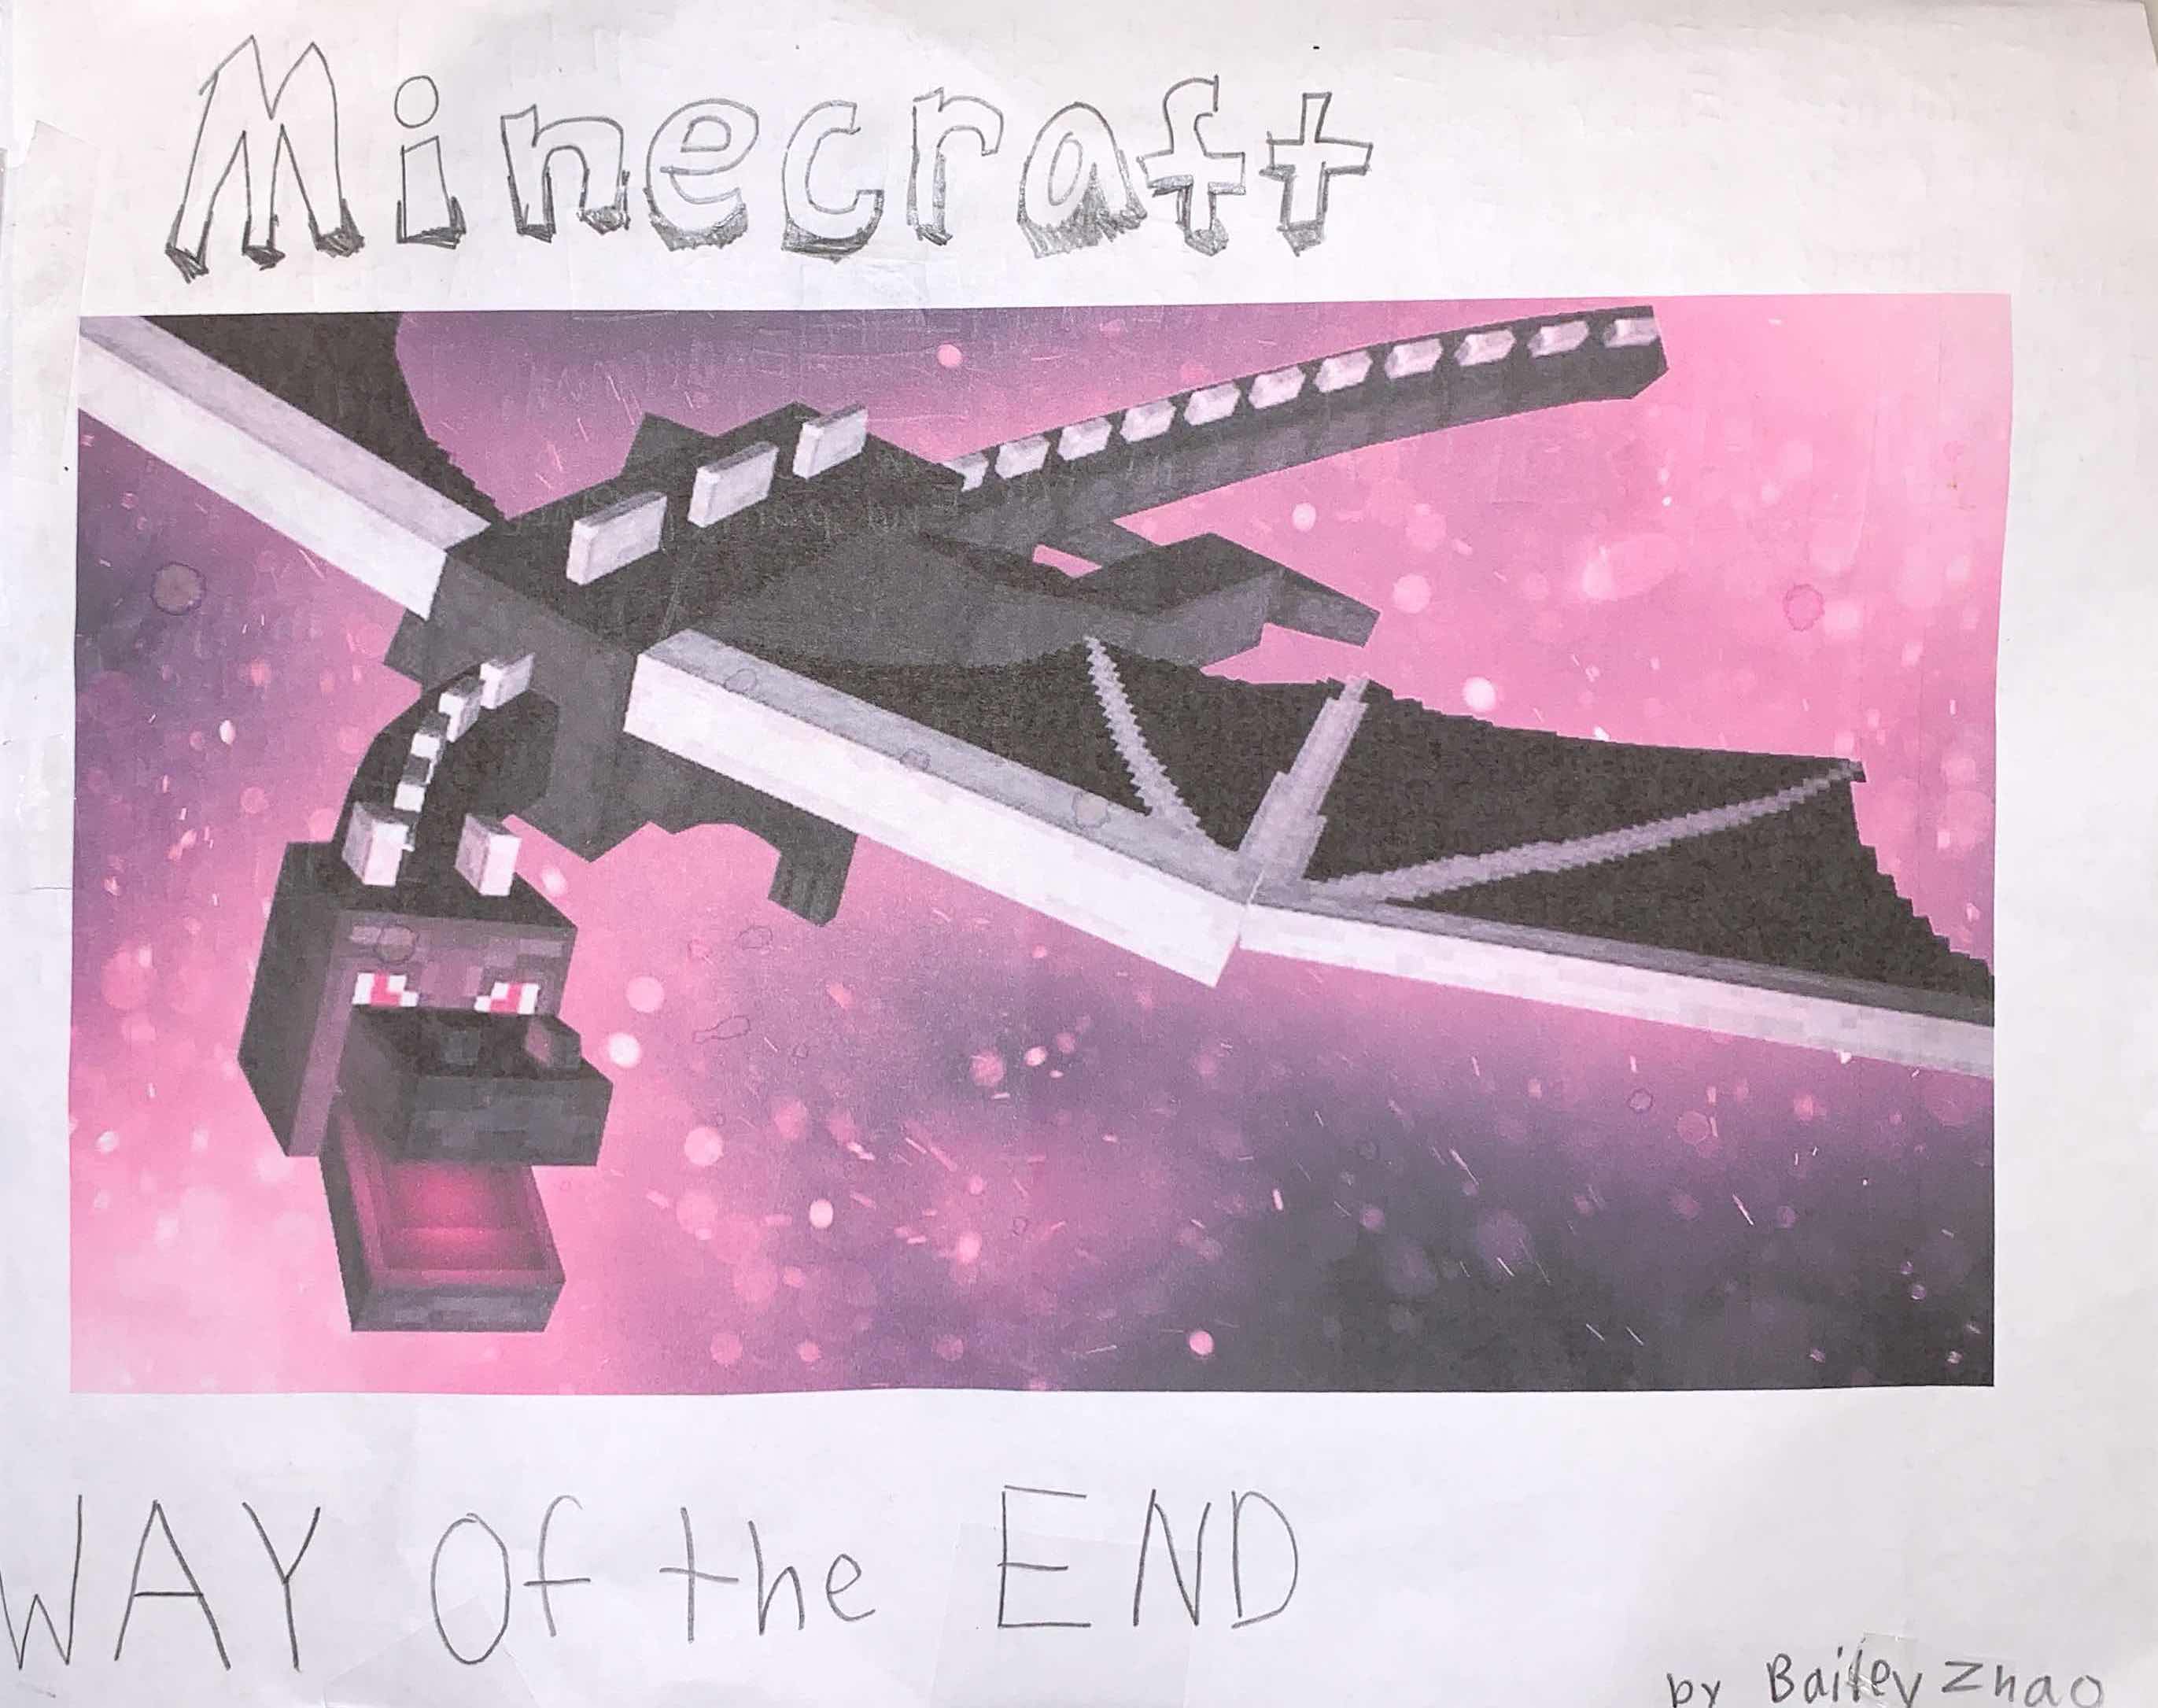 Minecraft
WAY Of the END
by Bailey Zhao